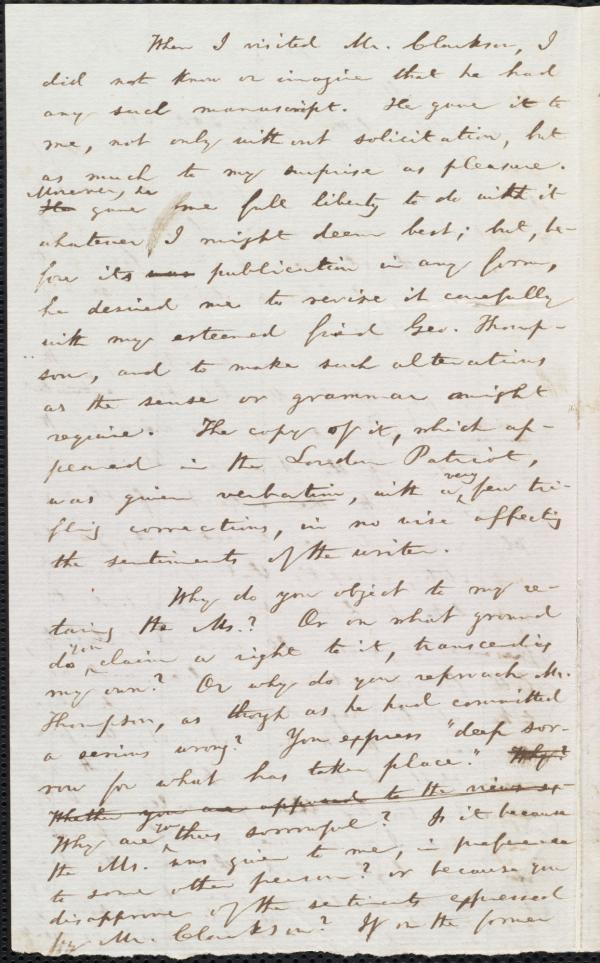 When I visited Mr. Clarkson, I
did not know or imagine that he had
any such manuscript. He gave it to
me, not only without solicitation, but
as much to my surprise as pleasure.
Moreover, he
He gave me full liberty to do with it
whatever I might deem best; but, be-
fore its was publication in any form,
he desired me to revise it carefully
with my esteemed friend Geo. Thomp-
son, and to make such alterations
as the sense or grammar might
require. The copy of it, which ap-
peared in the London Patriot,
was given verbatim, with a very few tri-
fling corrections, in no wise affecting
the sentiments of the writer.
Why do you object to my re-
taining the Ms.? Or on what ground
do you claim a right to it, transcending
my own? Or why do you reproach Mr.
Thompson, as though as he had committed
a serious wrong? You express "deep sor-
row for what has taken place." Why?
Whether you are opposed to the views ex-
Why are you thus sorrowful? Is it because
the Ms. was given to me, in preference
to some other person? or because you
disapprove of the sentiments expressed
by Mr. Clarkson? If on the former